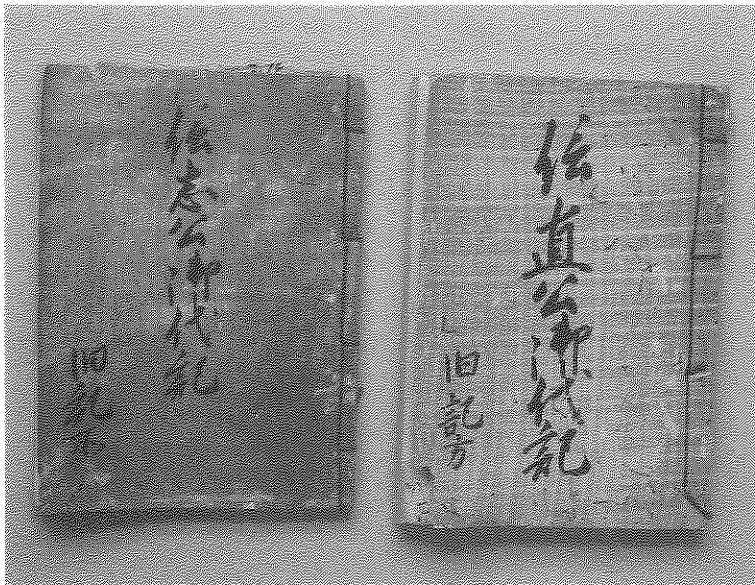 直公御代記
旧記方
志公御代記
旧記方